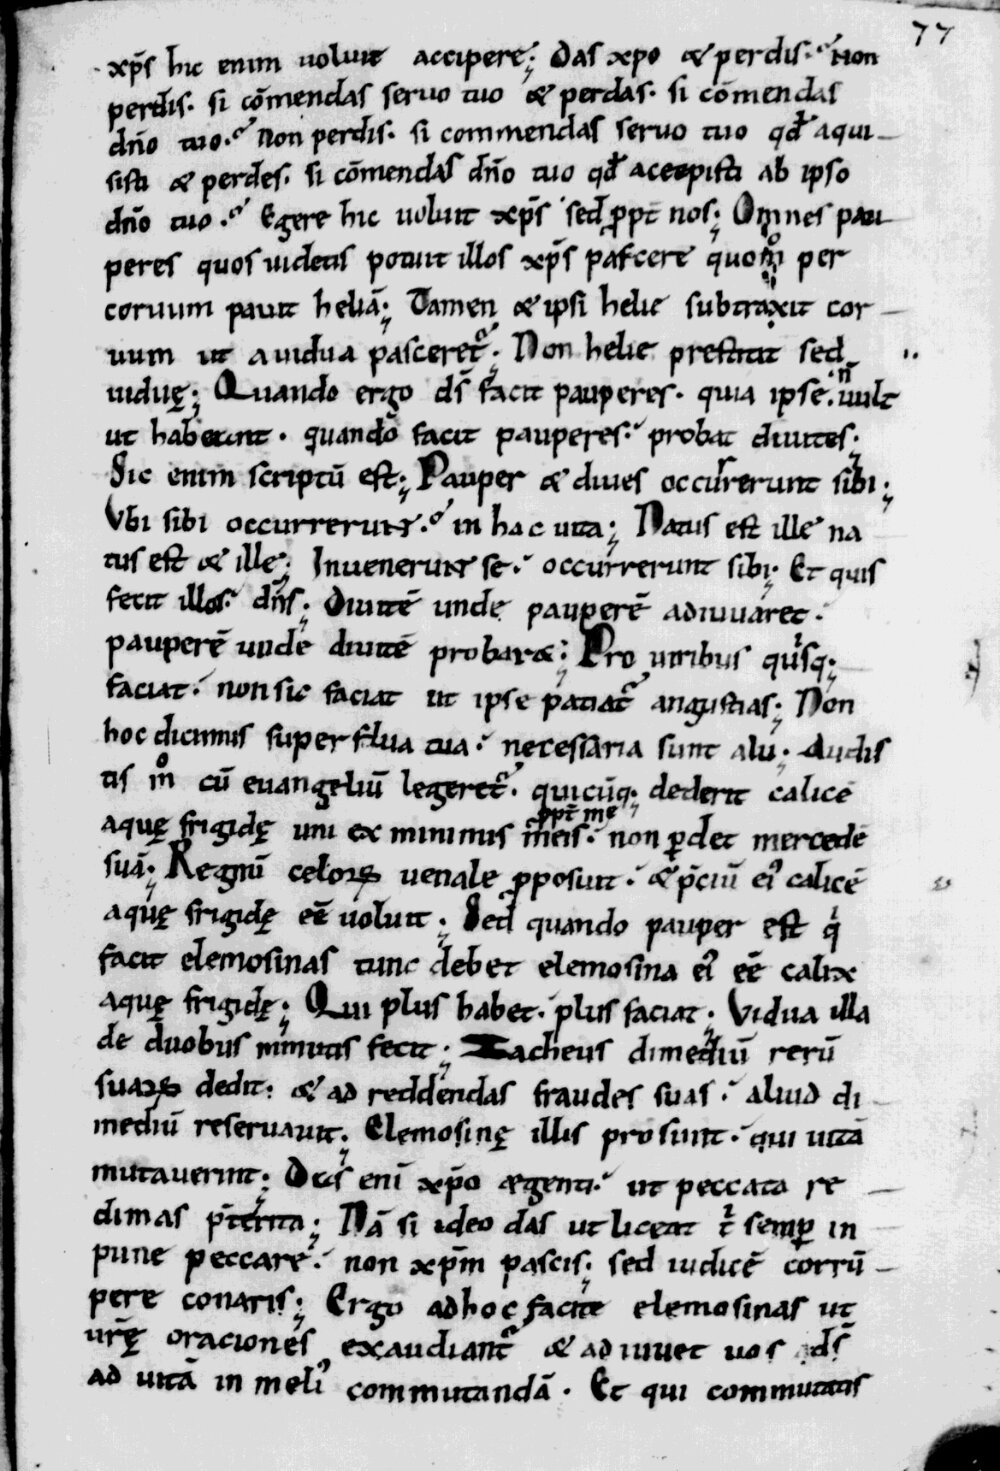 77
xp̄s hic enim uoluit accipere; Das xp̄o & perdis? Non
perdis. si cōmendas seruo tuo & perdas. si cōmendas
dn̄o tuo? Non perdis. si commendas seruo tuo qđ aqui
sisti & perdes. si cōmendas dn̄o tuo qđ accepisti ab ipso
dn̄o tuo? Egere hic uoluit xp̄s sed ꝓpt̄ nos; Omnes pau
peres quos uidetis potuit illos xp̄s pascere quom̊ per
coruum pauit heliā; Tamen & ipsi helie subtraxit cor
uum ut a uidua pasceret᷑. Non helie prestitit sed
uiduę; Quando ergo ds̄ facit pauperes. quia ipse n̄ uult
ut habeant. quando facit pauperes. probat diuites;
Sic enim scriptū est; Pauper & diues occurrerunt sibi;
Vbi sibi occurrerunt? in hac uita; Natus est ille na
tus est & ille; Inuenerunt se. occurrerunt sibi; Et quis
fecit illos. dn̄s; Diuitē unde pauperē adiuuaret.
pauperē unde diuitē probar&; Pro uiribus qͥsq;
faciat. non sic faciat ut ipse patiat᷑ angustias; Non
hoc dicimus superflua tua. necessaria sunt alii; Audis
tis m̊ cū euangeliū legeret᷑. quicūq; dederit calicē
aquę frigidę uni ex minimis meis ꝓpt̄ me. non ꝑdet mercedē
suā; Regnū celoꝝ uenale ꝓposuit. & p̄ciū ei᷒ calicē
aquę frigidę eē uoluit; Sed quando pauper est qͥ
facit elemosinas tunc debet elemosina ei᷒ eē calix
aquę frigidę; Qui plus habet. plus faciat; Vidua illa
de duobus minutis fecit; Zacheus dimediū rerū
suaꝝ dedit. & ad reddendas fraudes suas. aliud di
mediū reseruauit; Elemosinę illis prosunt. qui uitā
mutauerint; Das enī xp̄o ægenti. ut peccata re
dimas p̄terita; Nā si ideo das ut liceat tͥ semꝑ in
pune peccare. non xp̄m pascis; sed iudicē corrū
pere conaris; Ergo ad hoc facite elemosinas ut
ur̄ę oraciones exaudiant᷑ & adiuuet uos ds̄
ad uitā in meli᷒ commutandā. Et qui commutatis